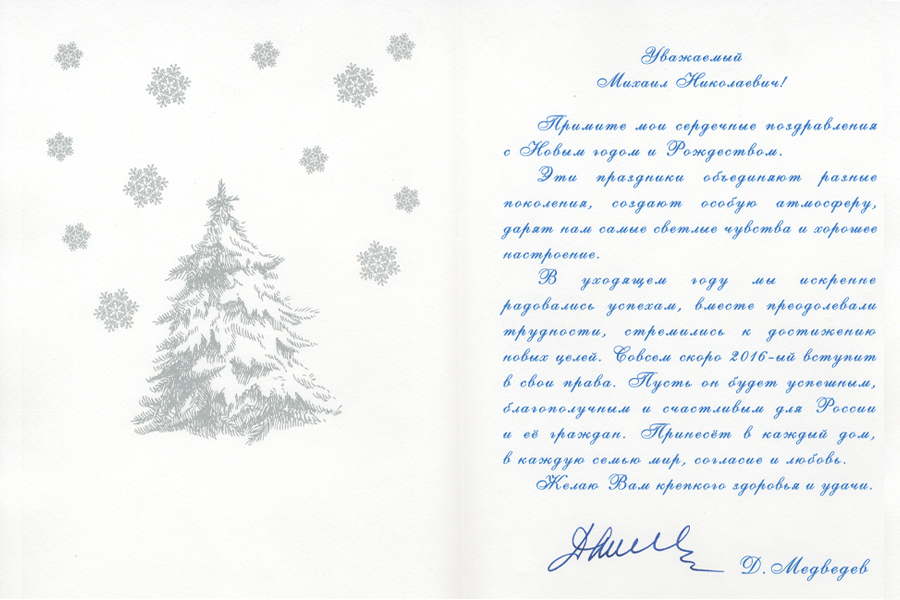 Уважаемый
Михаил Николаевич!
Примите мои сердечные поздравления
с Новым годом и Рождеством.
Эти праздники объединяют разные
поколения, создают особую атмосферу,
дарят нам самые светлые чувства и хорошее
настроение.
В уходящем году мы искренне
радовались успехам, вместе преодолевали
трудности, стремились к достижению
новых целей. Совсем скоро 2016-ый вступит
в свои права. Пусть он будет успешным,
благополучным и счастливым для России
и её граждан. Принесёт в каждый дом,
в каждую семью мир, согласие и любовь.
Желаю Вам крепкого здоровья и удачи.
Д. Медведев